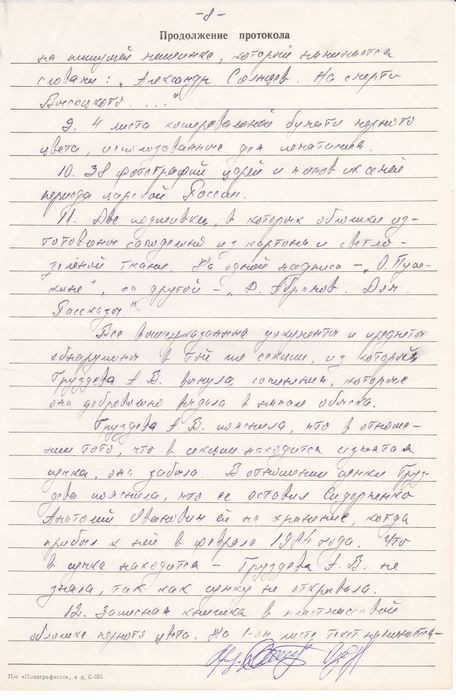 -8-
Продолжение протокола
на пишущей машинке, который начинается
словами: „Александр Солнцев. На смерть
Высоцкого ...."
9. 4 листа копировальной бумаги черного
цвета, использованные для печатания.
10. 38 фотографий царей и членов их семей
периода царской России.
11. Две подшивки, в которых обложки из-
готовлены самодельно из картона и светло-
зеленой ткани. На одной надпись - „О. Пуш-
кине", на другой - „Ф. Абрамов. Дом.
Рассказы."
Все вышеуказанные документы и предметы
обнаружены в той же секции, из которой
Груздева А.В. вынула сочинения, которые
она добровольно выдала в начале обыска.
Груздева А.В. пояснила, что в отноше-
нии того, что в секции находится изъятая
сумка, она забыла. В отношении сумки Груз-
дева пояснила, что ее оставил Сидорченко
Анатолий Иванович ей на хранение, когда
прибыл к ней в феврале 1984 года. Что
в сумке находится - Груздева А.В. не
знала, так как сумку не открывала.
12. Записная книжка в пластмассовой
обложке черного цвета. На 1-ом листе текст начинается-
П/о «Полиграфист», 4 д, С-333